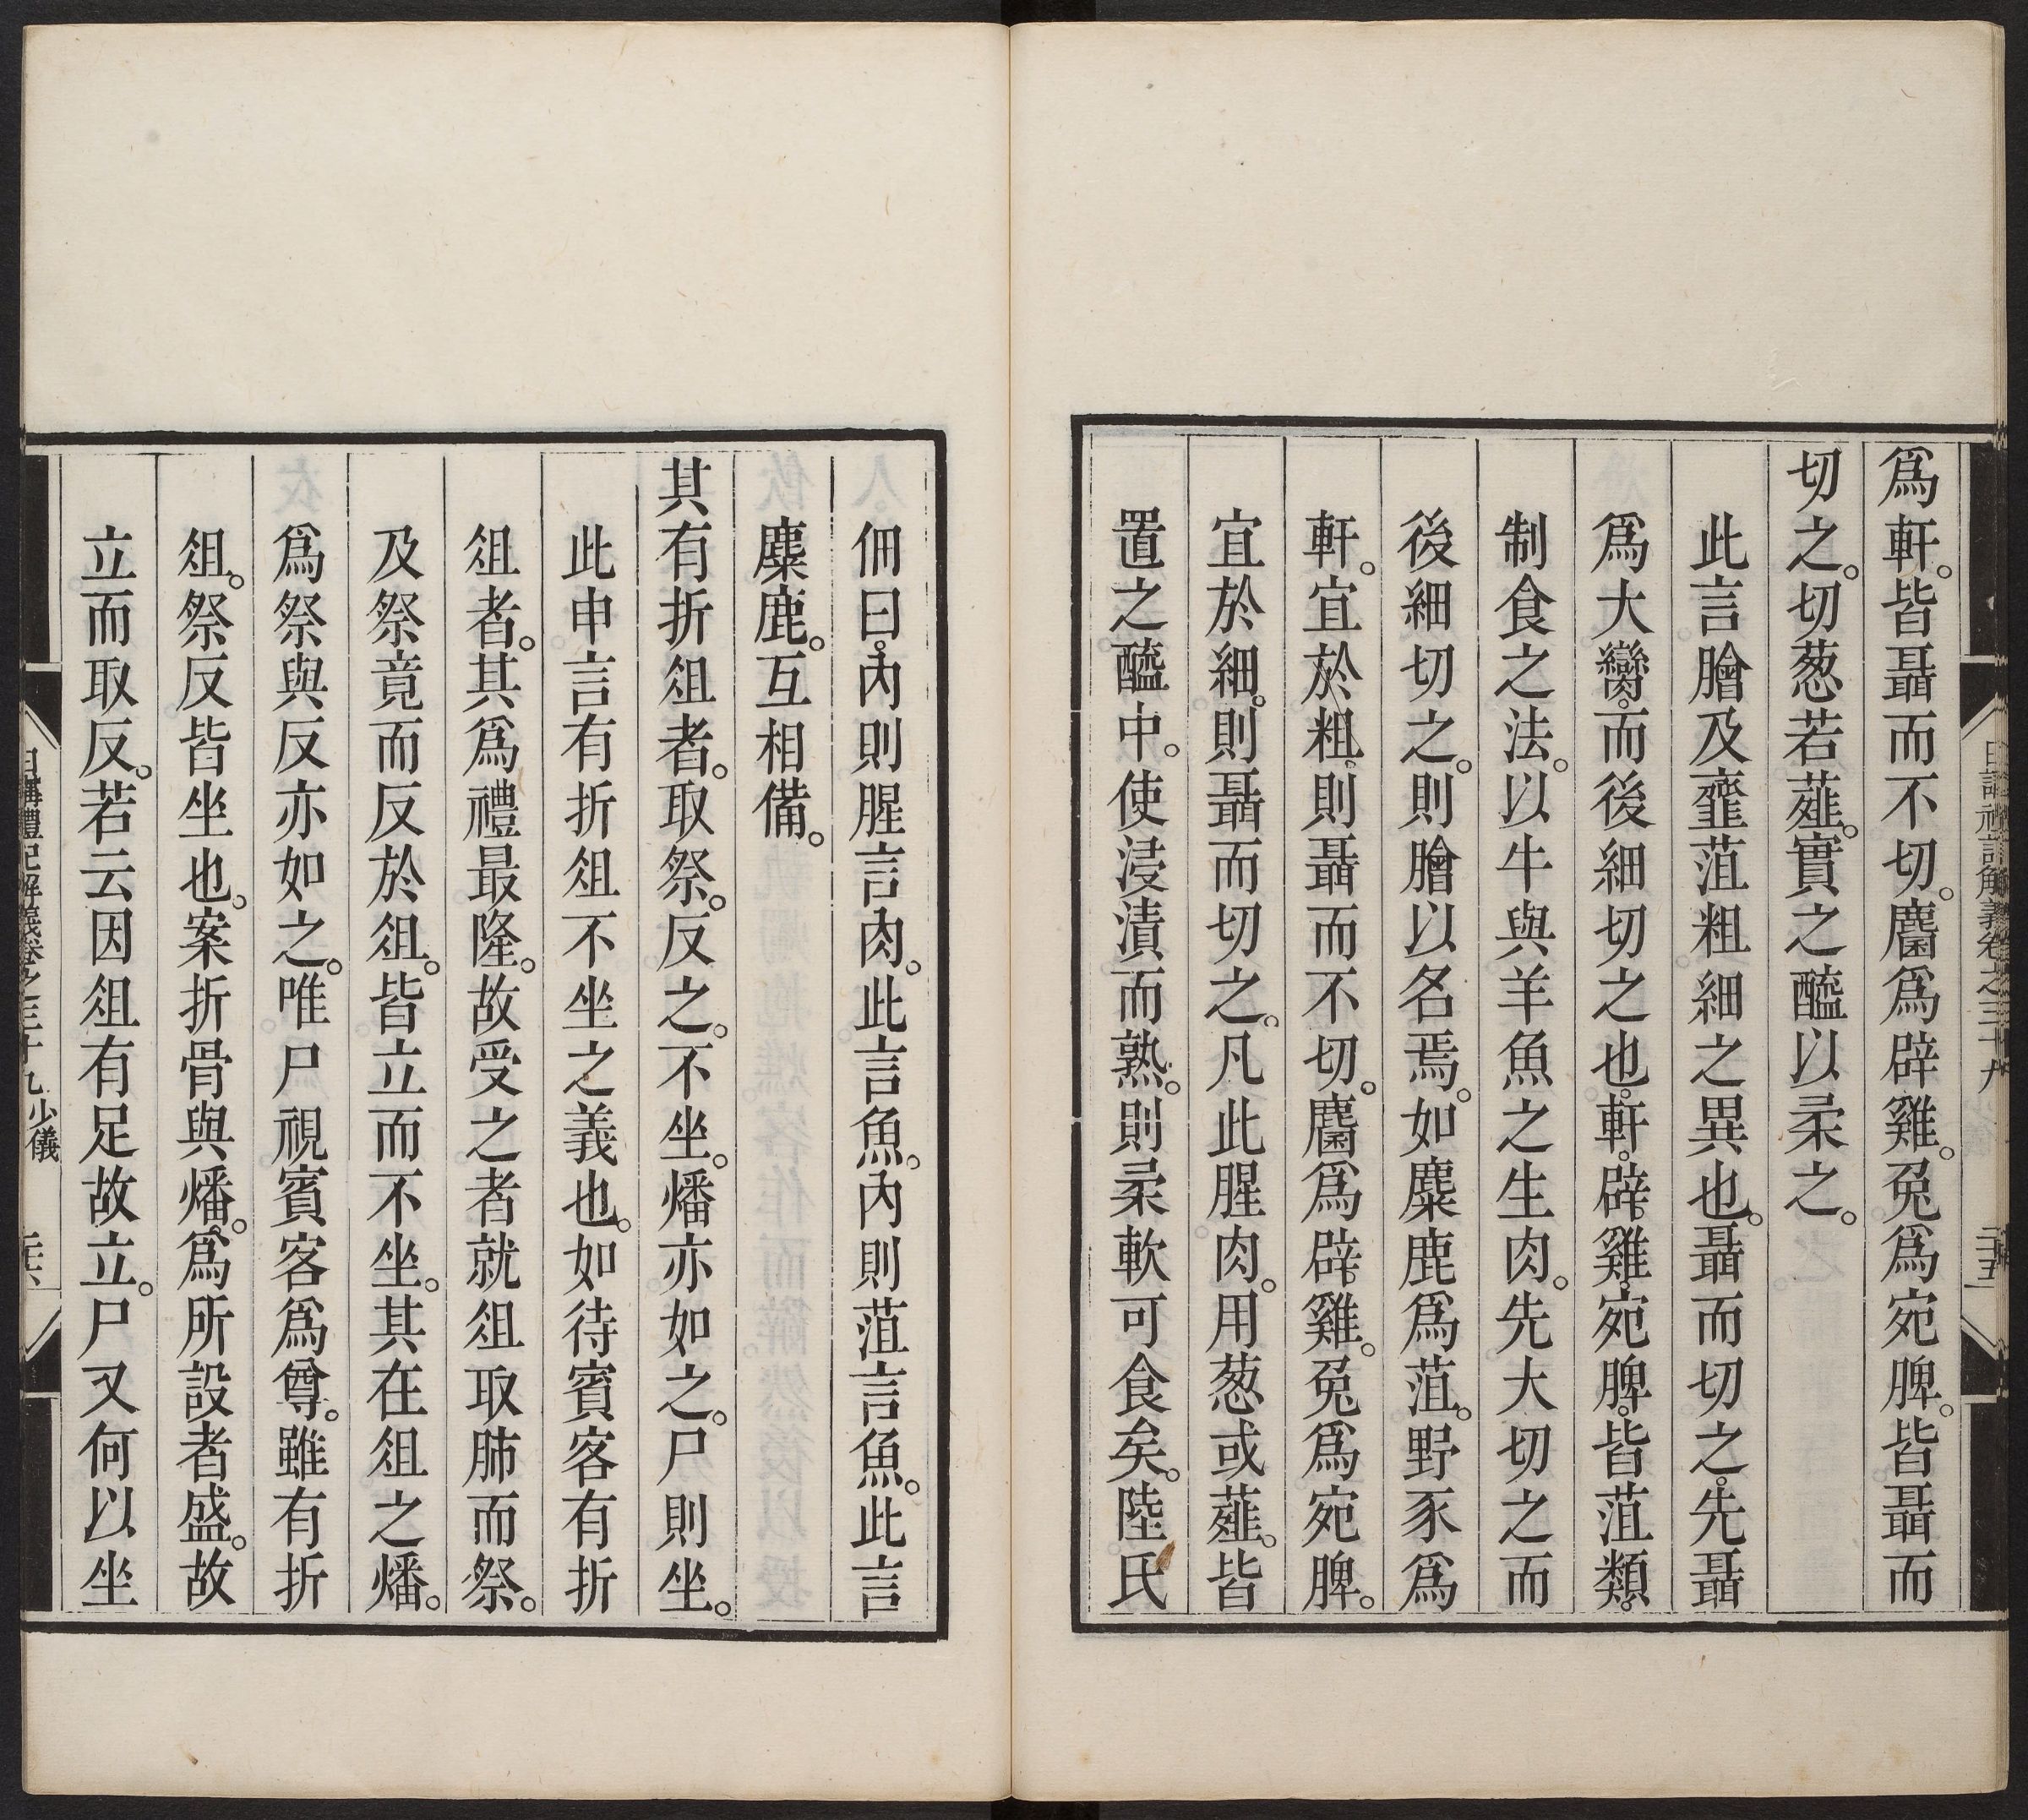 爲軒。皆聶而不切。麕爲辟雞。兔爲宛脾。皆聶而
切之。切葱若薤。實之醯以柔之。
此言膾及虀菹粗細之異也。聶而切之。先聶
爲大臠。而後細切之也。軒。辟雞。宛脾。皆菹類。
制食之法。以牛與羊魚之生肉。先大切之而
後細切之。則膾以名焉。如麋鹿爲菹。野豕爲
軒。宜於粗。則聶而不切。麕爲辟雞。兔爲宛脾。
宜於細。則聶而切之。凡此腥肉。用葱或薤。皆
置之醯中。使浸漬而熟。則柔軟可食矣。陸氏
日講禮記解義卷之三十九 二十五
佃曰。內則腥言肉。此言魚。內則菹言魚。此言
麋鹿。互相備。
其有折俎者。取祭。反之。不坐。燔亦如之。尸則坐。
此申言有折俎不坐之義也。如待賓客有折
俎者。其爲禮最隆。故受之者就俎取肺而祭。
及祭竟而反於俎。皆立而不坐。其在俎之燔。
爲祭與反亦如之。唯尸視賓客爲尊。雖有折
俎。祭反皆坐也。案折骨與燔。爲所設者盛。故
立而取反。若云因俎有足故立。尸又何以坐
日講禮記解義卷之三十九 少儀